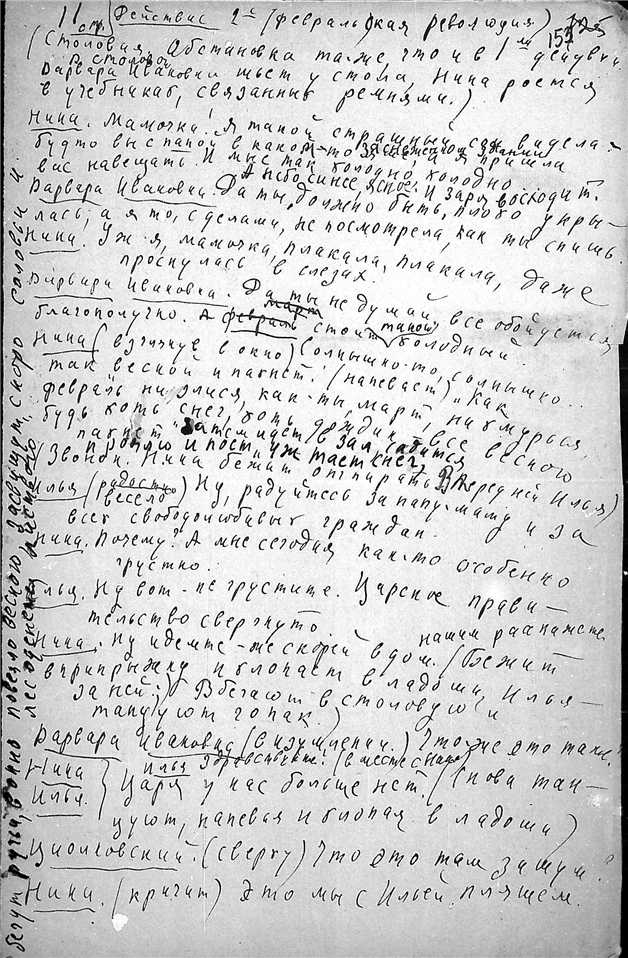 11 стр. Действие 2ᵉ (февральская революция)
(Столовая. Обстановка та же, что и в 1ᵐ действии.
В столовой
Варвара Ивановна шьет у стола, Нина роется
в учебниках, связанных ремнями.)
Нина. Мамочка. Я такой страшный сон видела –
будто вы с папой в каком-то заснеженном здании я пришла
вас навещать. И мне так холодно, холодно.
А небо синее, ясное. И заря восходит.
Варвара Ивановна. Да ты, должно быть, плохо укры-
лась; а я то, сделами, не посмотрела, как ты спишь.
Нина. Уж я, мамочка, плакала, плакала, даже
проснулась в слезах.
Варвара Ивановна. Да ты не думай, все обойдется
благополучно. А март февраль стоит такой холодный.
Нина (взглянув в окно) Солнышко-то, солнышко..
так весной и пахнет! (напевает) "Как
февраль ни злися, как ты, март, ни хмурься,
будь хоть снег, хоть дождик, все весною
пахнет" Затем идет в зал, садится
и поет "уж тает снег,
(Звонок. Нина бежит отпирать. В передней Илья)
Илья (радостно весело) Ну, радуйтесь за папу-маму и за
всех свободолюбивых граждан.
Нина. Почему? А мне сегодня как-то особенно
грустно.
Илья. Ну вот - не грустите. Царское прави-
тельство свергнуто.
Нина. Ну идемте-же скорей в дом. нашим расскажете (Бежит
вприпрыжку и хлопает в ладоши, Илья –
за ней. Вбегают в столовую и
танцуют гопак.)
Варвара Ивановна (в изумлении.) Что же это такое?
Илья Здравствуйте! (вместе с Ниной)
Нина
Илья. } Царя у нас больше нет. (Снова тан-
цуют, напевая и хлопая в ладоши)
Циолковский. (сверху) Что это там за шум?
Нина. (кричит) Это мы с Ильей пляшем.
бегут ручьи, в окно повеяло весною, засвищут скоро соловьи и
лес оденется листвою